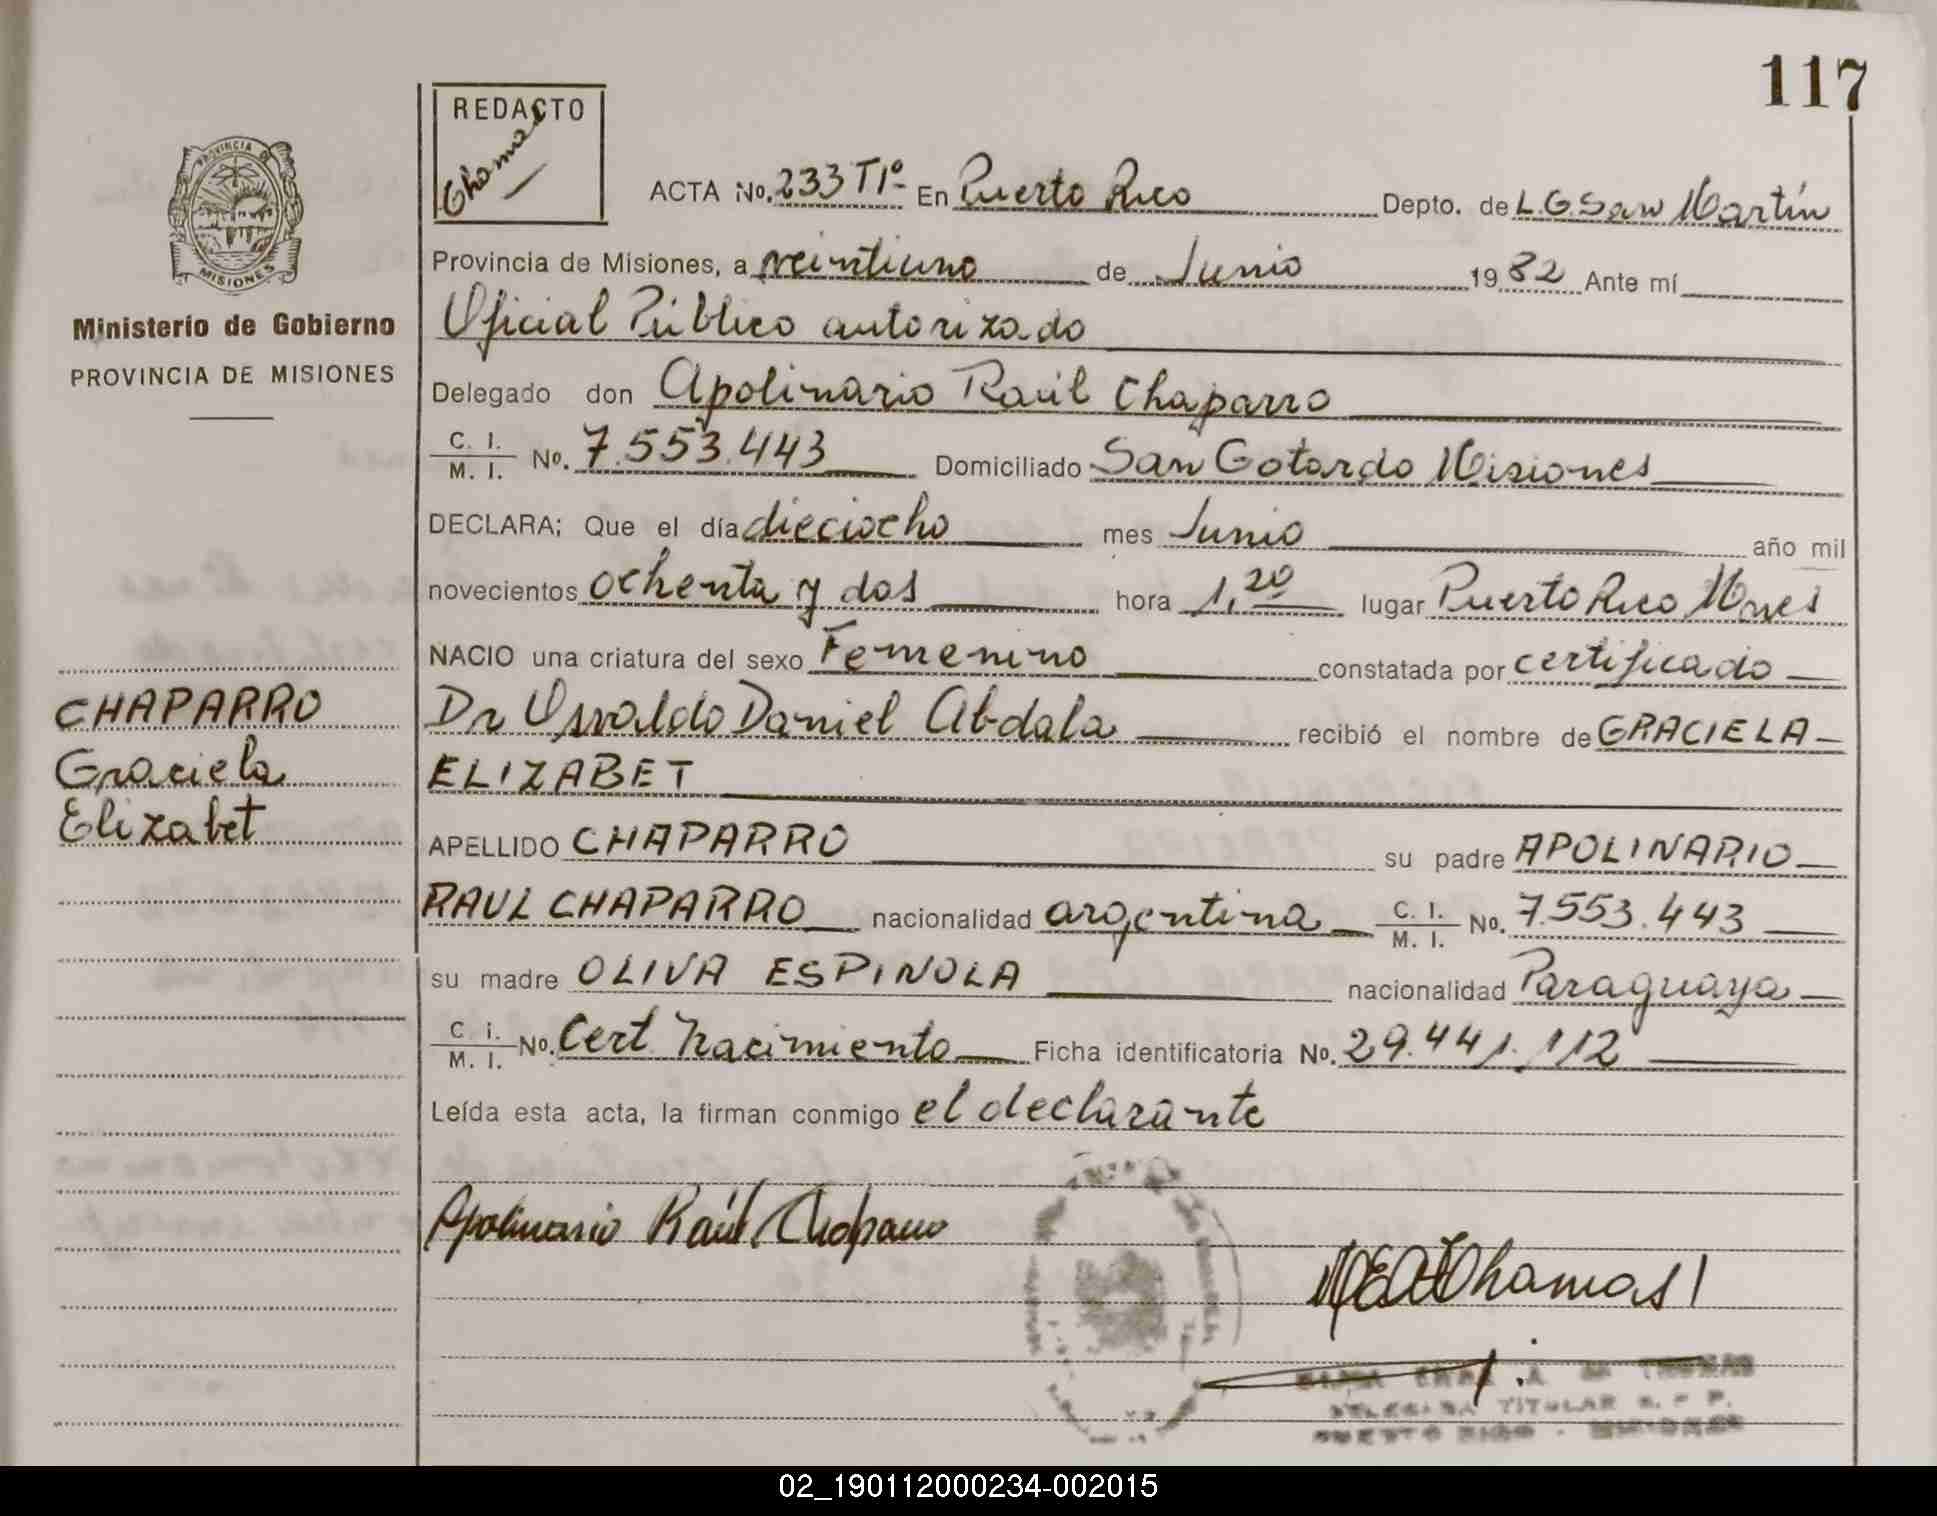 117
REDACTO
Thomas
PROVINCIA DE
MISIONES
Ministerio de Gobierno
PROVINCIA DE MISIONES
ACTA No. 233 T1º- En Puerto Rico Depto. de L.G. San Martín
Provincia de Misiones, a veintiuno de Junio 1982 Ante mí
Oficial Público autorizado
Delegado don Apolinario Raúl Chaparro
C. I. M. I. No. 7.553.443 Domiciliado San Gotardo Misiones
DECLARA; Que el día dieciocho mes Junio año mil
novecientos ochenta y dos hora 1,20 lugar Puerto Rico Mnes
NACIO una criatura del sexo Femenino constatada por certificado
Dr Osvaldo Daniel Abdala recibió el nombre de GRACIELA
ELIZABET
APELLIDO CHAPARRO su padre APOLINARIO
RAUL CHAPARRO nacionalidad argentina C. I. M. I. No. 7.553.443
su madre OLIVA ESPINOLA nacionalidad Paraguaya
C. i. M. I. No. Cert. Nacimiento Ficha identificatoria No. 29.441.112
Leída esta acta, la firman conmigo el declarante
CHAPARRO
Graciela
Elizabet
Apolinario Raúl Chaparro
Thomas
THOMAS
DELEGADA TITULAR R. P.
PUERTO RICO - MISIONES
02_190112000234-002015